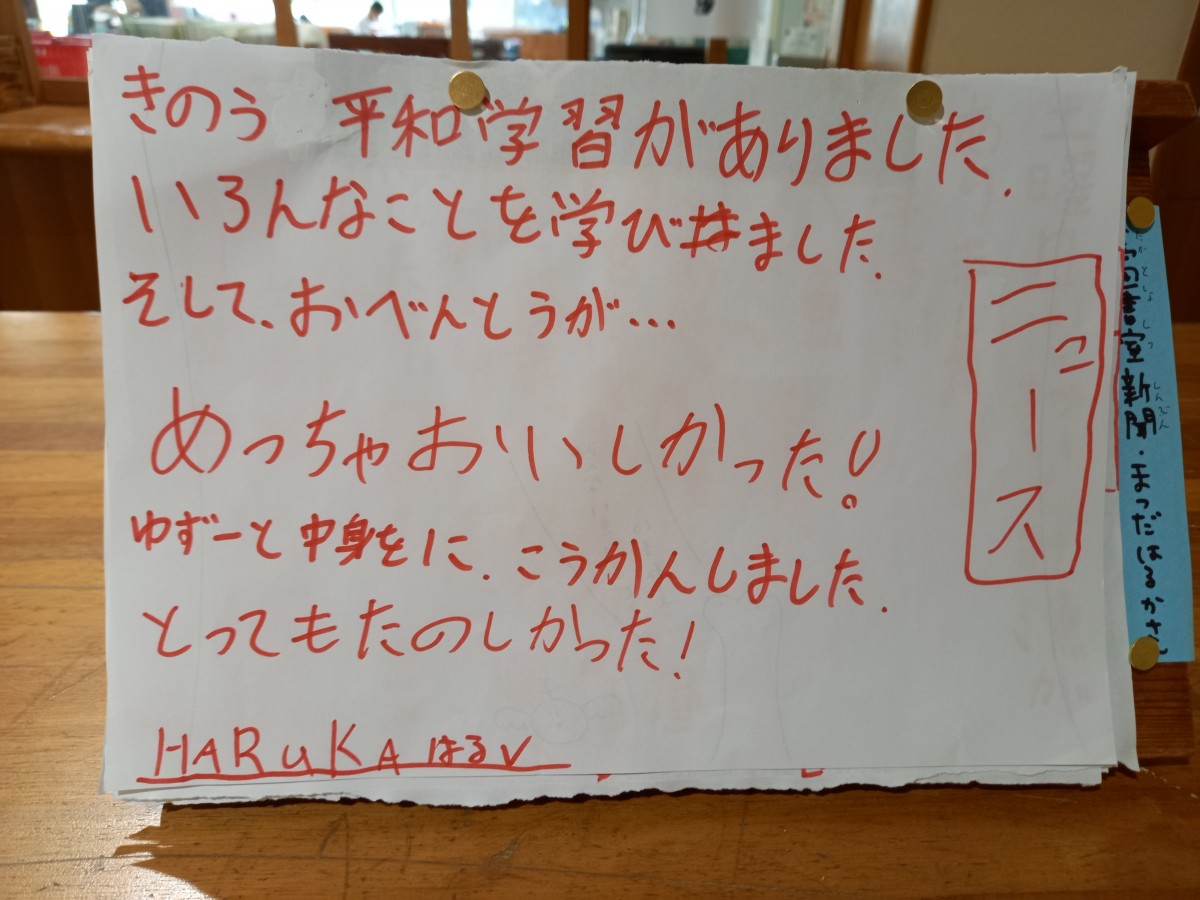 きのう 平和学習がありました.
いろんなことを学びました.
そして、おべんとうが…
めっちゃおいしかった!
ゆずーと中身をに、こうかんしました.
とってもたのしかった!
HARUKA はるV
ニュース
図書室新聞・まつだはるかさん
としょしつ
しんぶん